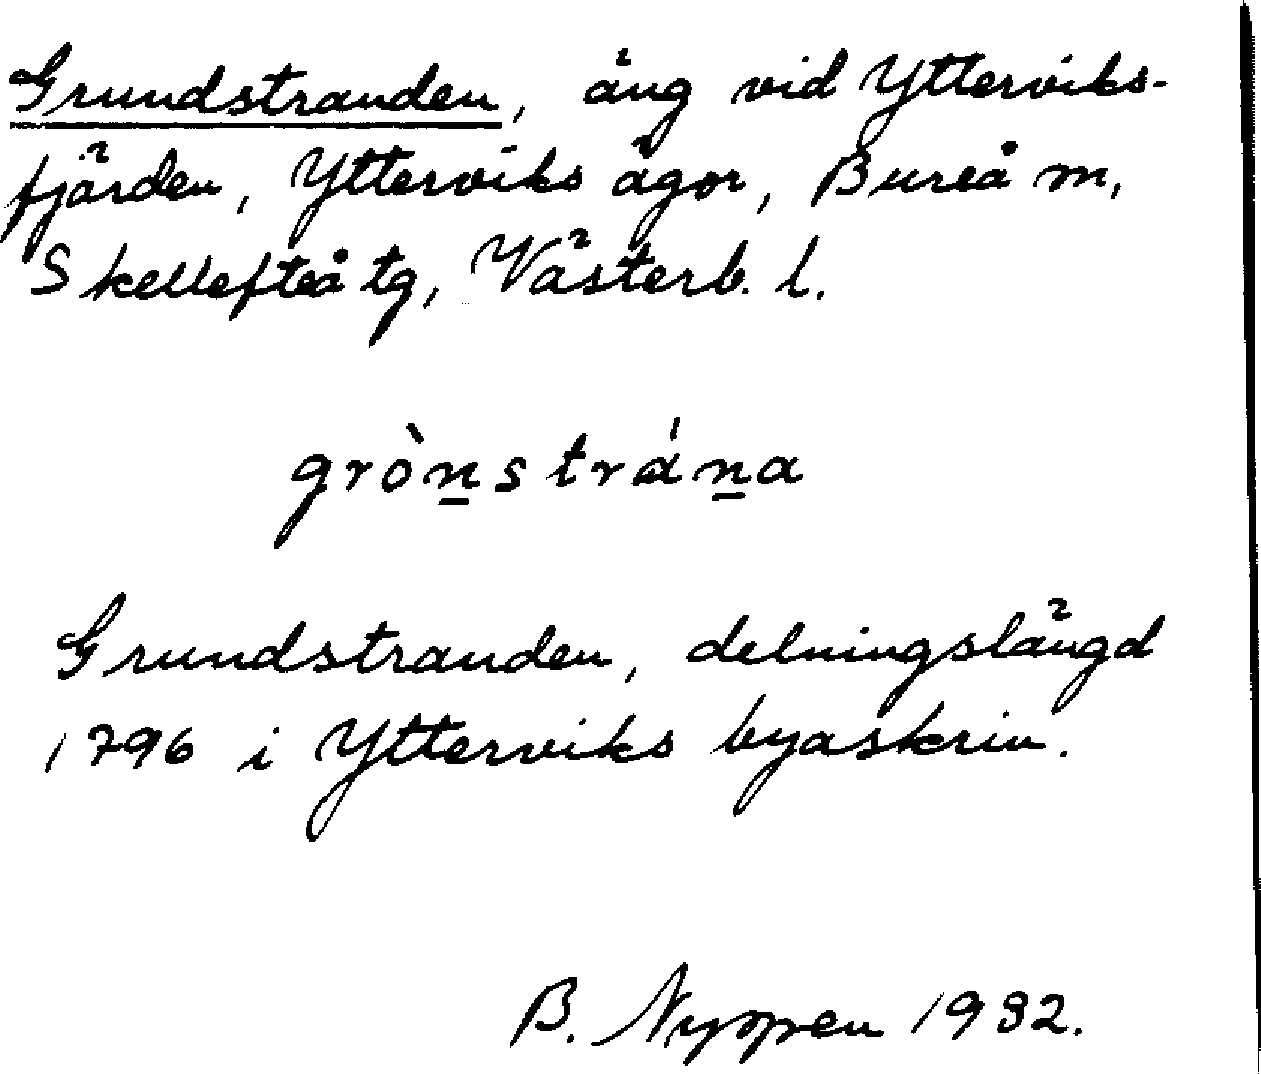 Grundstranden, äng vid Ytterviks-
fjärden, Ytterviks ägor, Bureå m,
Skellefteå tg, Västerb. l.
gròn̲strán̲a
Grundstranden, delningslängd
1796 i Ytterviks byaskriv.
B. Nyppen 1932.